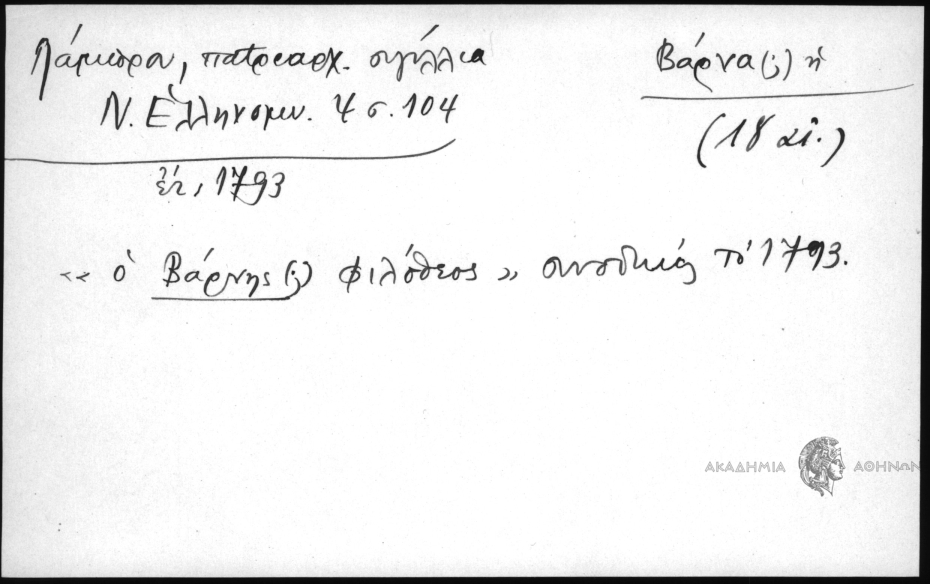 Λάμπρου, πατριαρχ. σιγίλλια
Ν. Ἑλληνομν. 4 σ. 104
Βάρνα (;) ἡ
(18 αἰ.)
ἔτ. 1793
«ὁ Βάρνης (;) Φιλόθεος» συνοδικός τό 1793.
ΑΚΑΔΗΜΙΑ ΑΘΗΝΩΝ